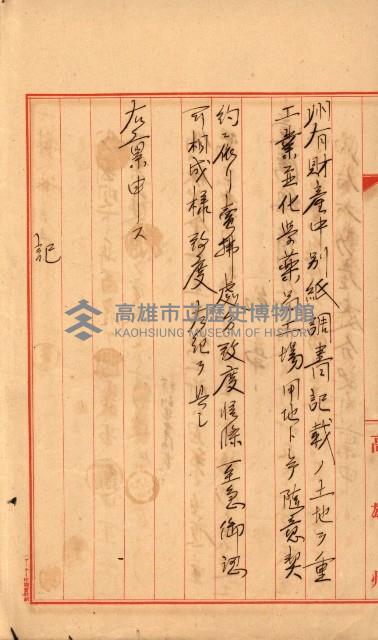 州有財產中別紙調書記載ノ土地ヲ重
工業並化學藥品工場用地トシテ隨意契
約ニ依リ賣拂處分致度候條至急御認
可相成樣致度左記ヲ具シ
右稟申ス
記
高雄州
高雄市立歷史博物館
KAOHSIUNG MUSEUM OF HISTORY